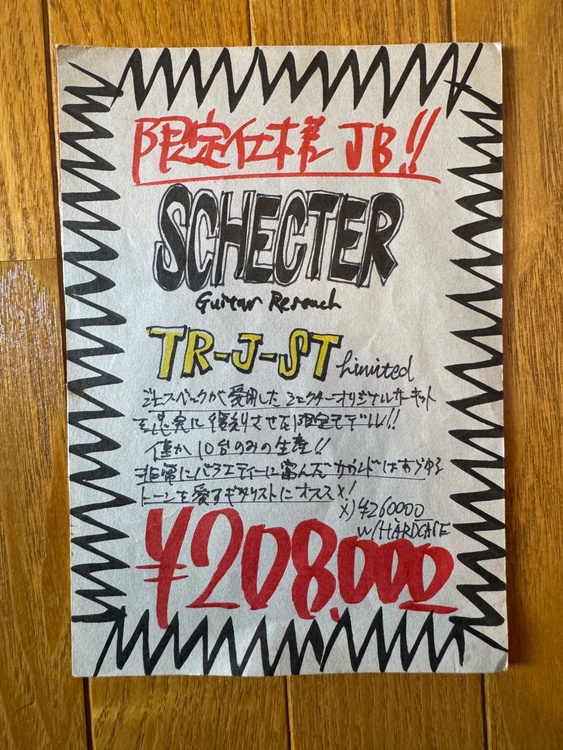 限定仕様 JB!!
SCHECTER
Guitar Reseach
TR-J-ST Limited
ジェフベックが愛用したシェクターオリジナルサーキット
を忠実に復刻させた限定モデル!!
僅か10台のみの生産!!
非常にバラエティーに富んだサウンドはあらゆる
トーンを愛すギタリストにオススメ!
メ)¥260000
w/HARDCASE
¥208,000